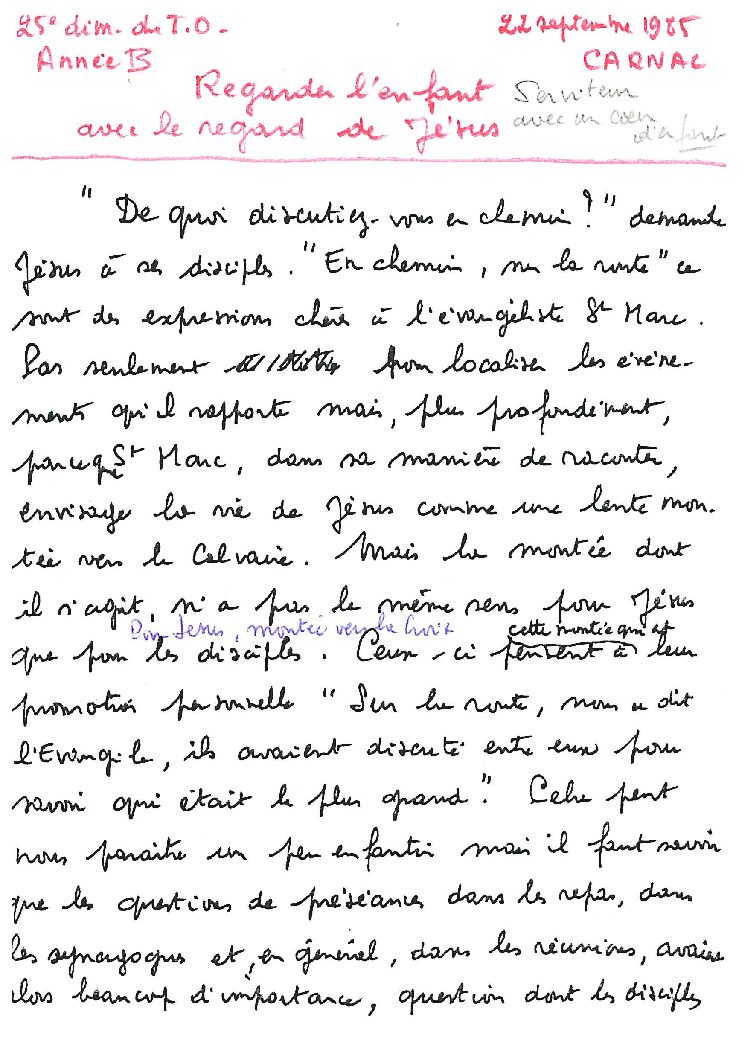 25e dim. du T.O.
22 septembre 1985
Année B
CARNAC
Regarder l'enfant
avec le regard de Jésus
Serviteur
avec un cœur
d'enfant
" De quoi discutiez-vous en chemin ? " demande
Jésus à ses disciples. " En chemin, sur la route " ce
sont des expressions chères à l'évangéliste St Marc.
Pas seulement pour localiser les événe-
ments qu'il rapporte mais, plus profondément,
parceque St Marc, dans sa manière de raconter,
envisage la vie de Jésus comme une lente mon-
tée vers le Calvaire. Mais la montée dont
il s'agit, n'a pas le même sens pour Jésus
Pour Jésus, montée vers la Croix
cette montée qui est
que pour les disciples. Ceux-ci pensent à leur
promotion personnelle " Sur la route, nous a dit
l'Evangile, ils avaient discuté entre eux pour
savoir qui était le plus grand ". Cela peut
nous paraître un peu enfantin mais il faut savoir
que les questions de préséances dans les repas, dans
les synagogues et, en général, dans les réunions, avaient
alors beaucoup d'importance, question dont les disciples